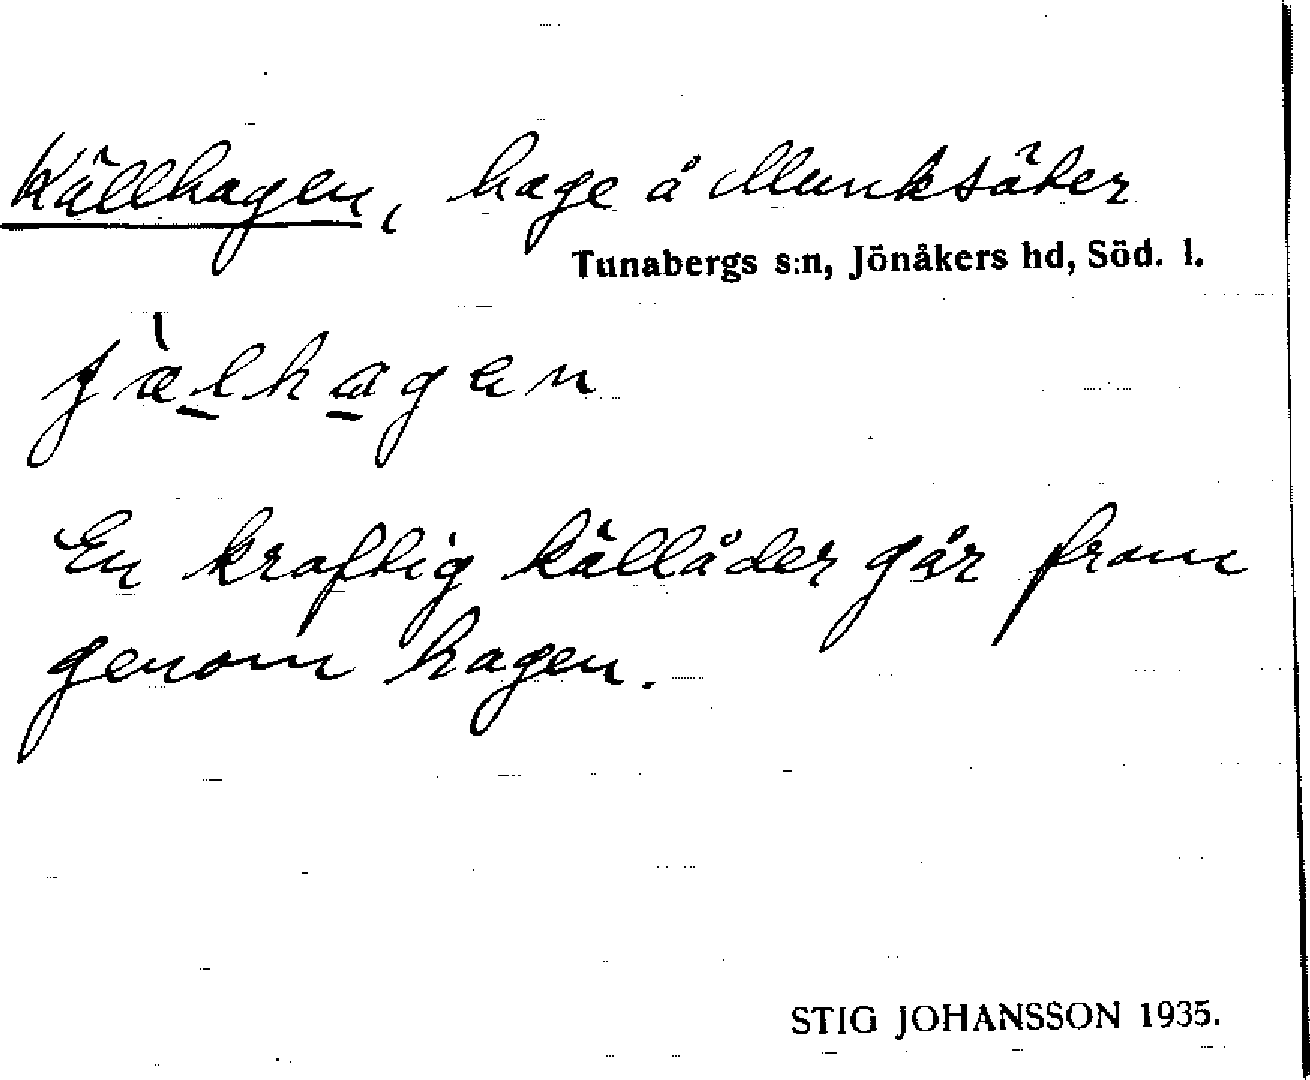 Källhagen, hage å Munksäter
Tunabergs s:n, Jönåkers hd, Söd. l.
jàlhagen
En kraftig källåder går fram
genom hagen.
STIG JOHANSSON 1935.